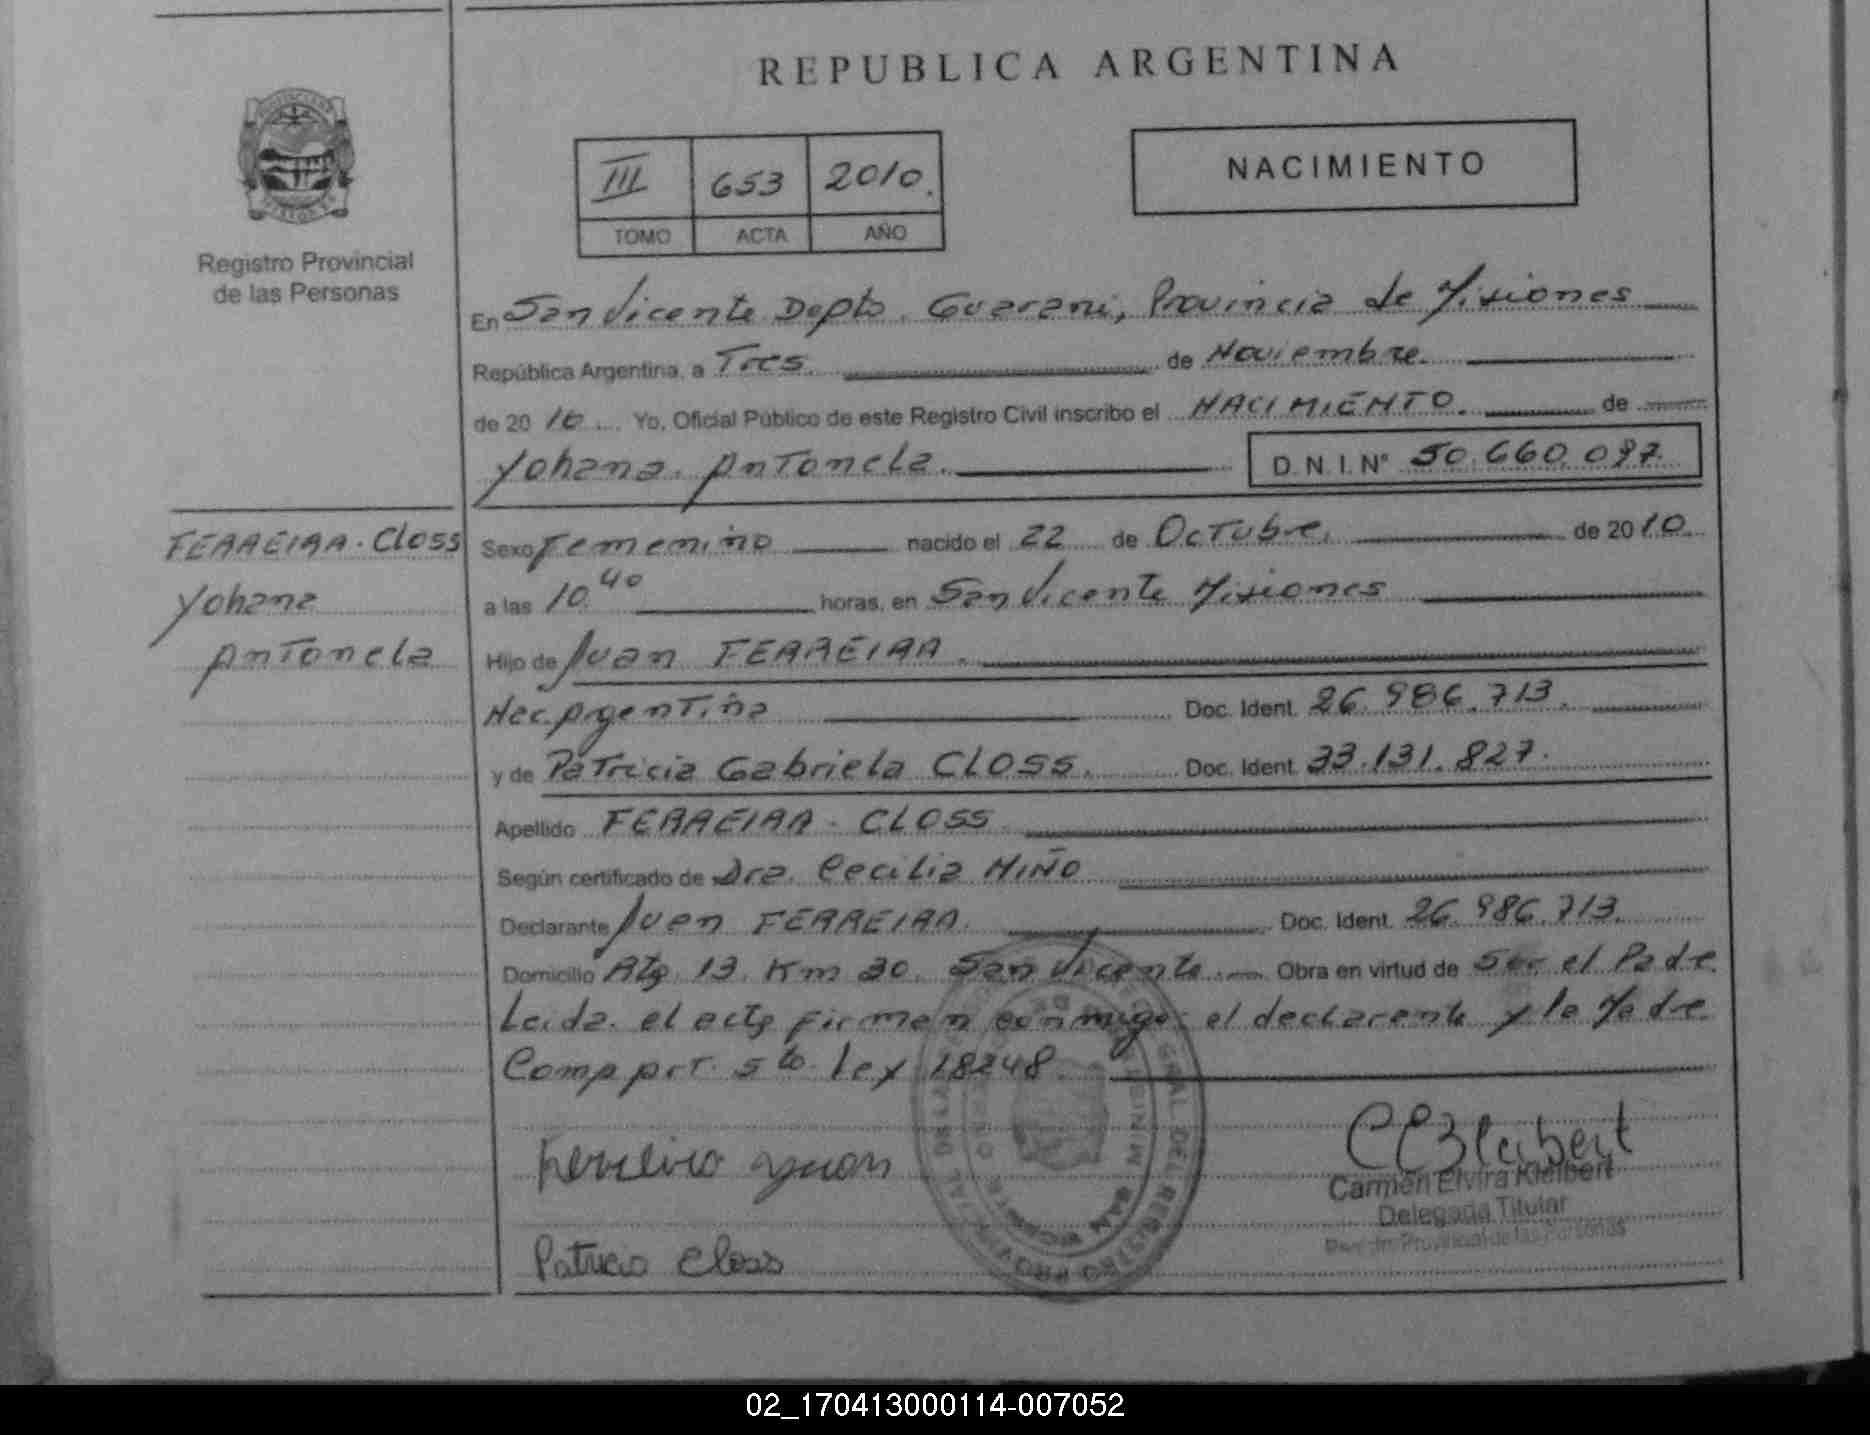 REPUBLICA ARGENTINA
III 653 2010.
TOMO ACTA AÑO
NACIMIENTO
Registro Provincial
de las Personas
En San Vicente Depto. Guarani, Provincia de Misiones
República Argentina, a Tres de Noviembre.
de 2010 Yo, Oficial Público de este Registro Civil inscribo el NACIMIENTO. de
Yohana Antonela. D.N.I.Nº 50.660.097.
FERREIRA - Closs
Yohana
Antonela
Sexo Femenino nacido el 22 de Octubre. de 2010.
a las 10.40 horas, en San Vicente Misiones
Hijo de Juan FERREIRA.
Nac. Argentina Doc. Ident. 26.986.713.
y de Patricia Gabriela CLOSS. Doc. Ident. 33.131.827.
Apellido FERREIRA - CLOSS
Según certificado de Dra. Cecilia MIÑO
Declarante Juan FERREIRA. Doc. Ident. 26.986.713.
Domicilio Rta 13. Km 30. San Vicente Obra en virtud de Ser el Padre
Leida el acta firman conmigo el declarante y la Madre
Comp Art. 5to Ley 18248.
Ferreira Juan
CEKleibert
Carmen Elvira Kleibert
Delegada Titular
Registro Provincial de las Personas
Patricia Closs
02_170413000114-007052